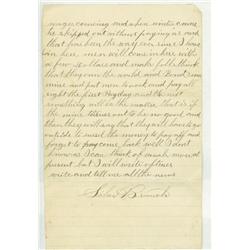 wages coming and when winter came
he skipped out without paying us and
that has been the way ever since I have
been here. men will come in here with
a few dollars and make folks think
that they own the world and Bond some
mine and put men to work and pay all
right the first Payday and the next
something will be the matter, that is if
the mine turns out to be no good, and
then they will say that they will have to go
outside to meet the money to pay off and
forget to pay come back. Well I dont
know as I can think of much more at
present but I will write often
write and tell me all the news